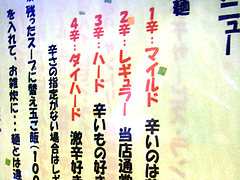 ニュー
麺
1辛…マイルド 辛いのは
2辛…レギュラー 当店通常
3辛…ハード 辛いもの好き
4辛…ダイハード 激辛好
辛さの指定がない場合はレ
残ったスープに替え玉ご飯(100
を入れて、お雑炊に…麺とは違